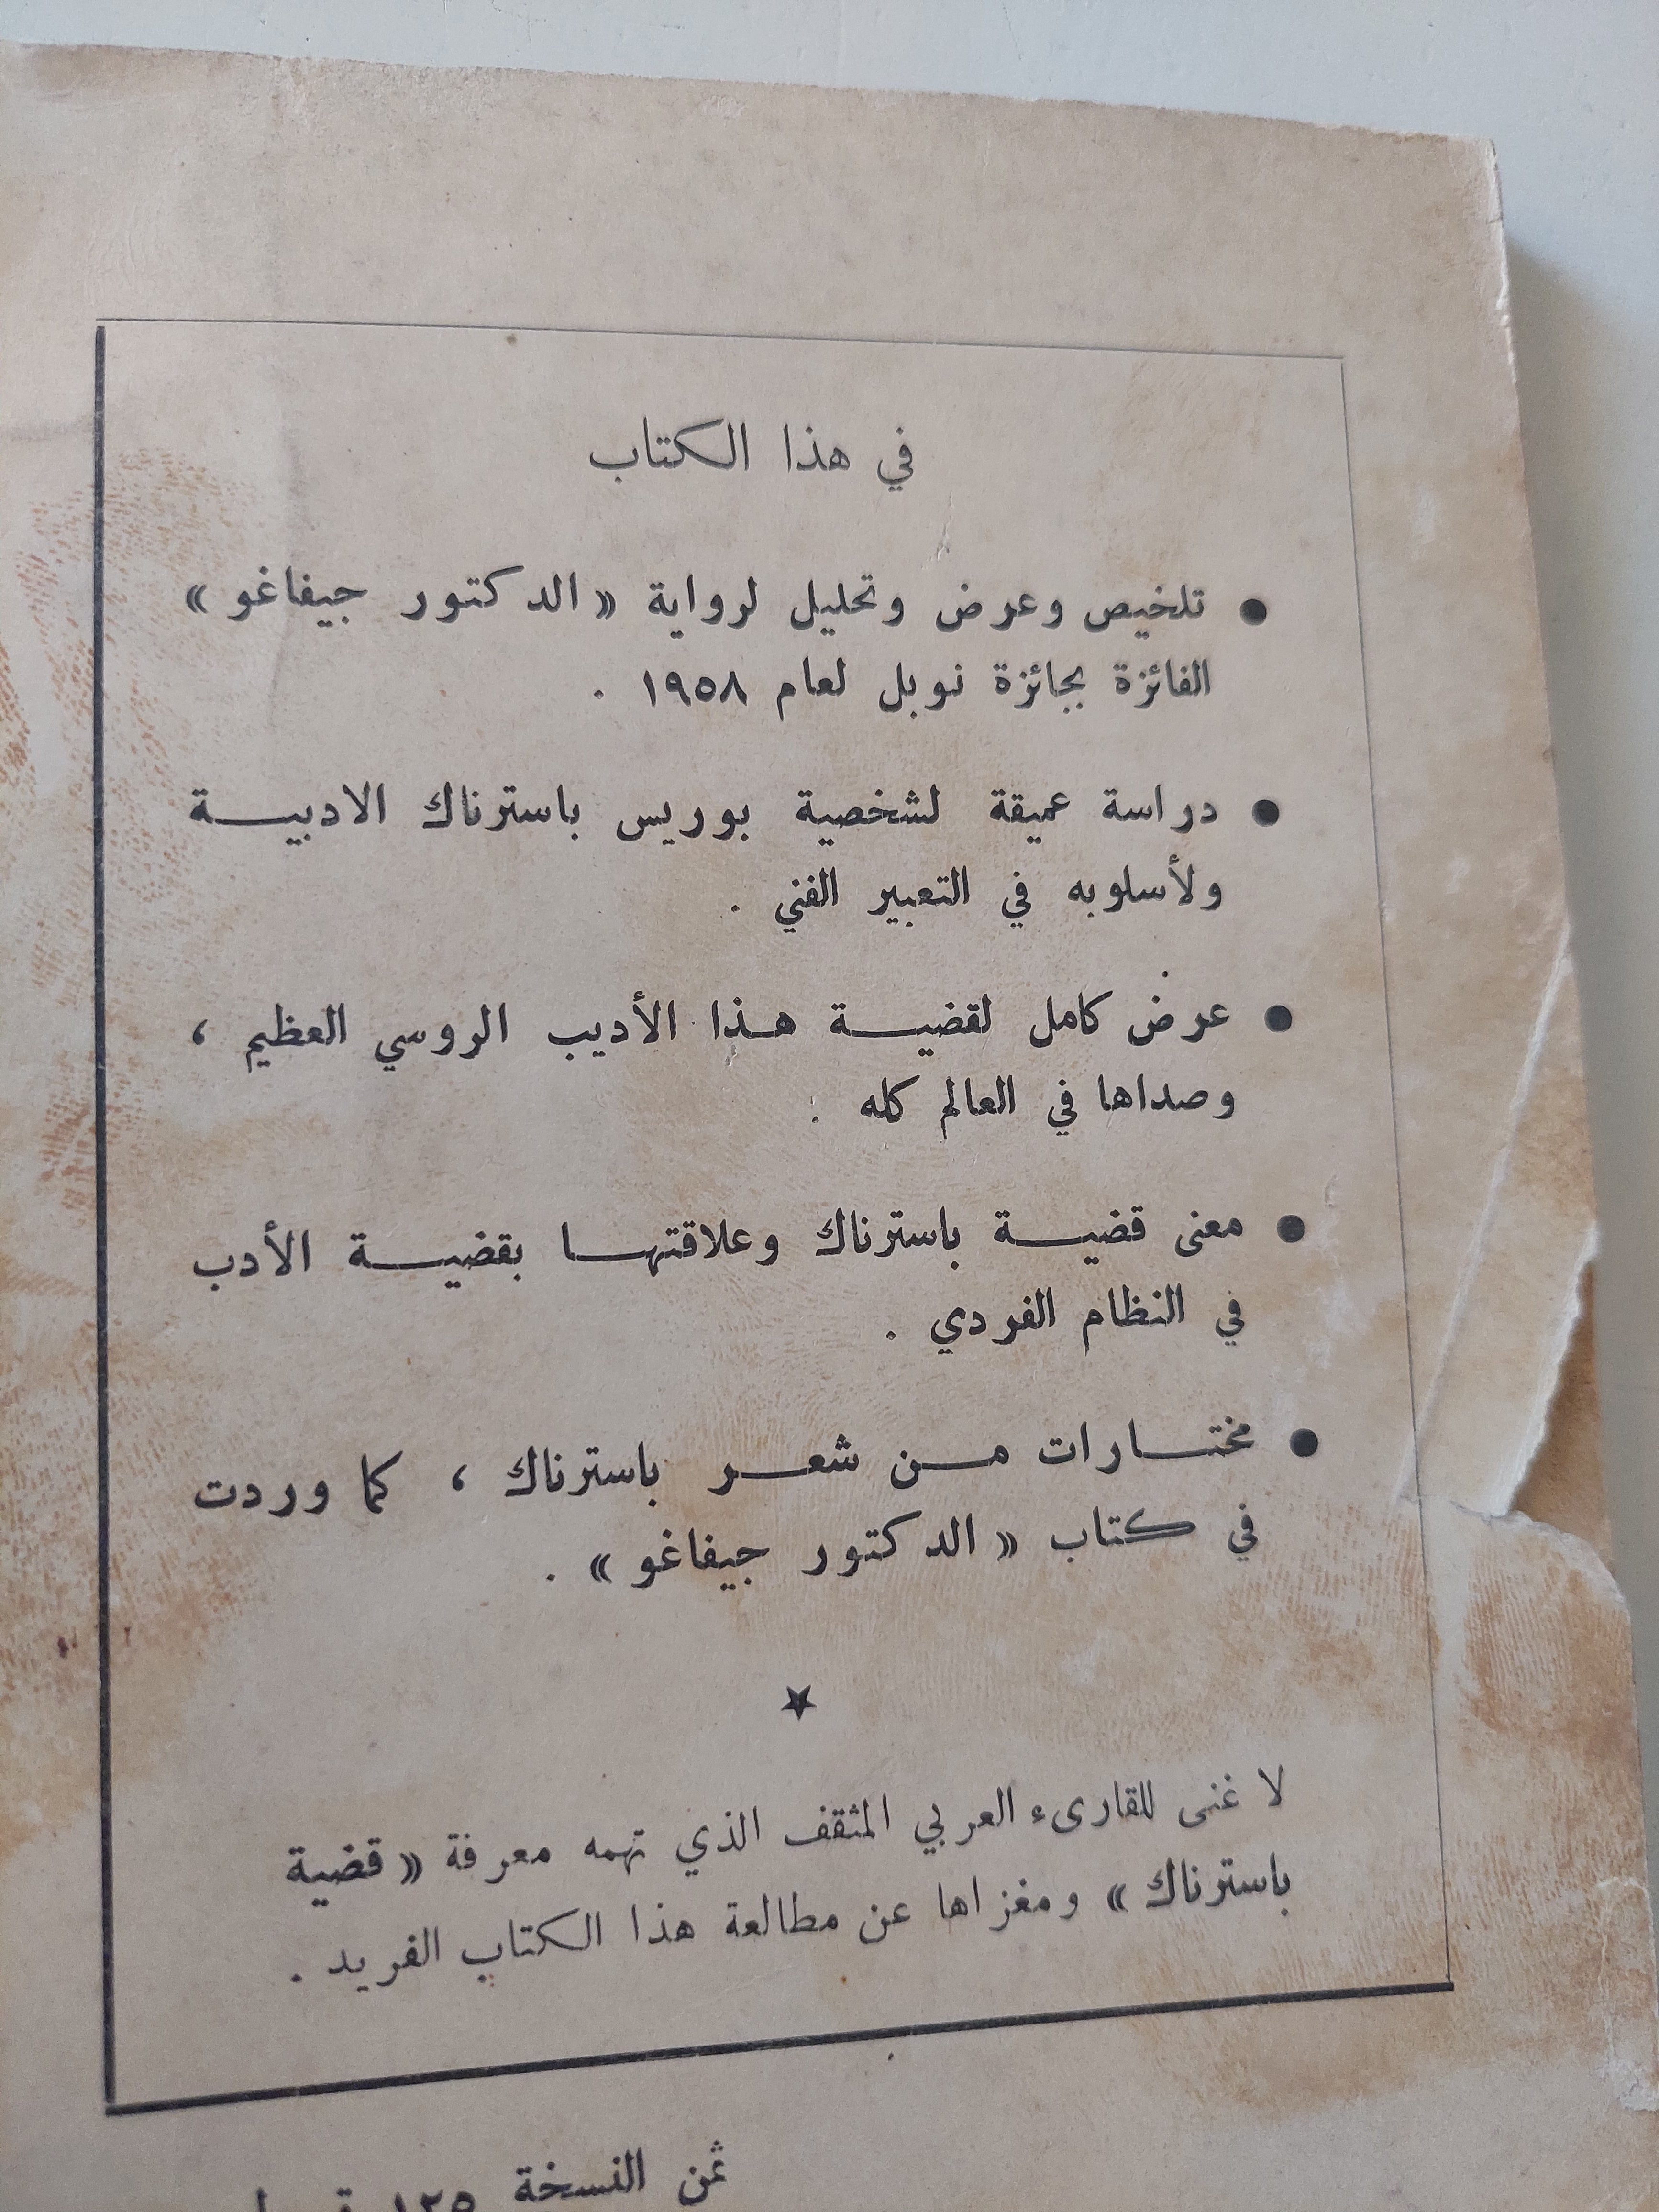 في هذا الكتاب
● تلخيص وعرض وتحليل لرواية « الدكتور جيفاغو »
الفائزة بجائزة نوبل لعام ١٩٥٨ .
● دراسة عميقة لشخصية بوريس باسترناك الادبية
ولأسلوبه في التعبير الفني .
● عرض كامل لقضية هذا الأديب الروسي العظيم ،
وصداها في العالم كله .
● معنى قضية باسترناك وعلاقتها بقضية الأدب
في النظام الفردي .
● مختارات من شعر باسترناك ، كما وردت
في كتاب « الدكتور جيفاغو » .
★
لا غنى للقارىء العربي المثقف الذي تهمه معرفة « قضية
باسترناك » ومغزاها عن مطالعة هذا الكتاب الفريد .
ثمن النسخة ١٢٥